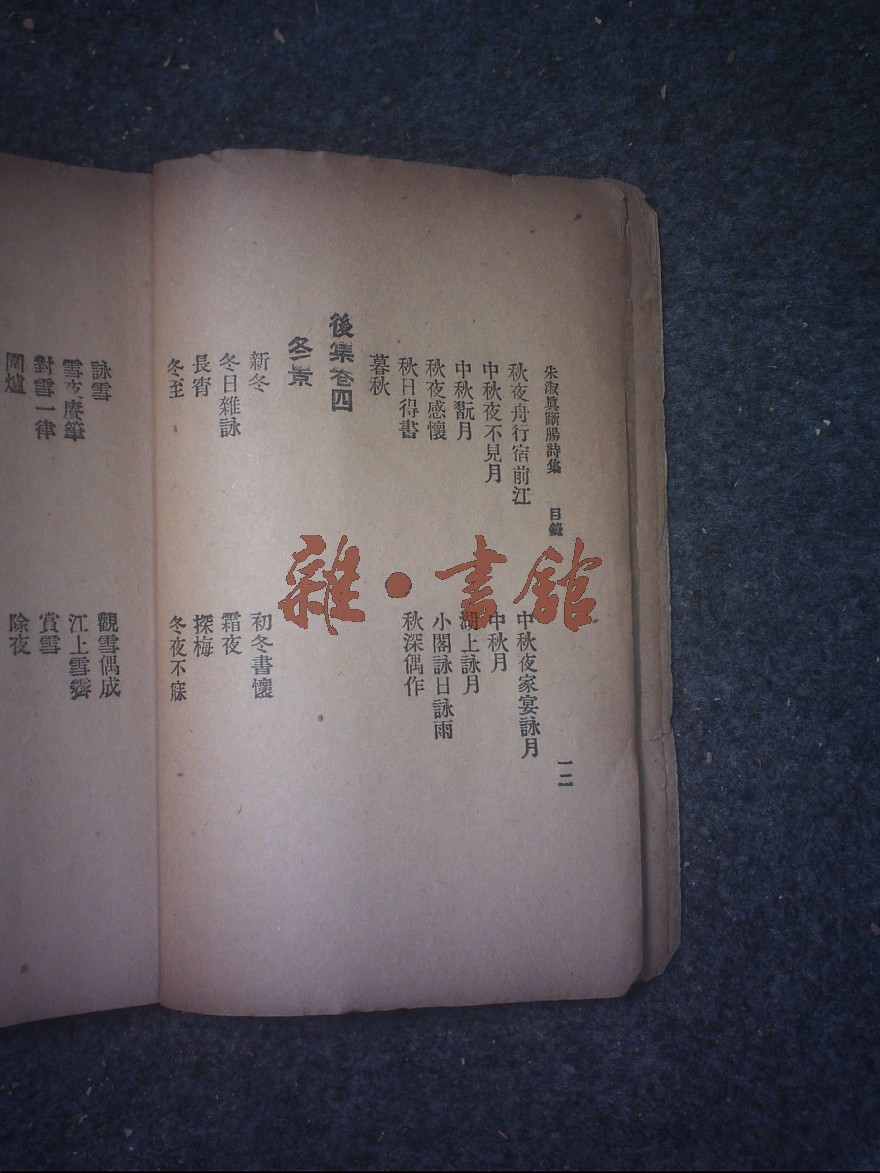 朱淑眞斷腸詩集 目錄 一二
秋夜舟行宿前江 中秋夜家宴詠月
中秋夜不見月 中秋月
中秋翫月 湖上詠月
秋夜感懷 小閣詠日詠雨
秋日得書 秋深偶作
暮秋
後集卷四
冬景
新冬 初冬書懷
冬日雜詠 霜夜
長宵 探梅
冬至 冬夜不寐
詠雪 觀雪偶成
雪夜賡筆 江上雪霽
對雪一律 賞雪
圍爐 除夜
雜·書館